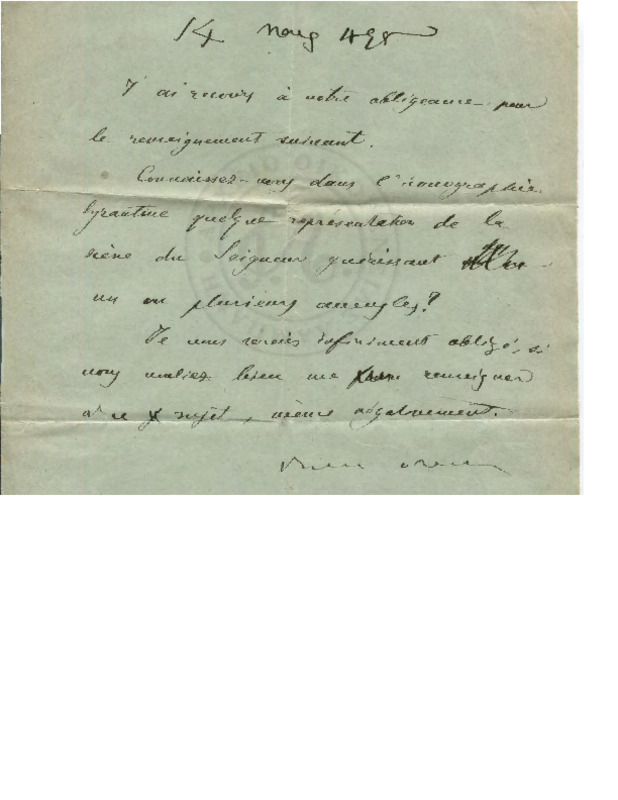 14
J'ai recours à votre obligeance pour
le renseignement suivant.
Connaissez-vous dans l'iconographie
byzantine quelque représentation de la
scène du Seigneur guérissant
un ou plusieurs aveugles?
Je vous serais infiniment obligé, si
vous vouliez bien me renseigner
à ce sujet, même négativement.